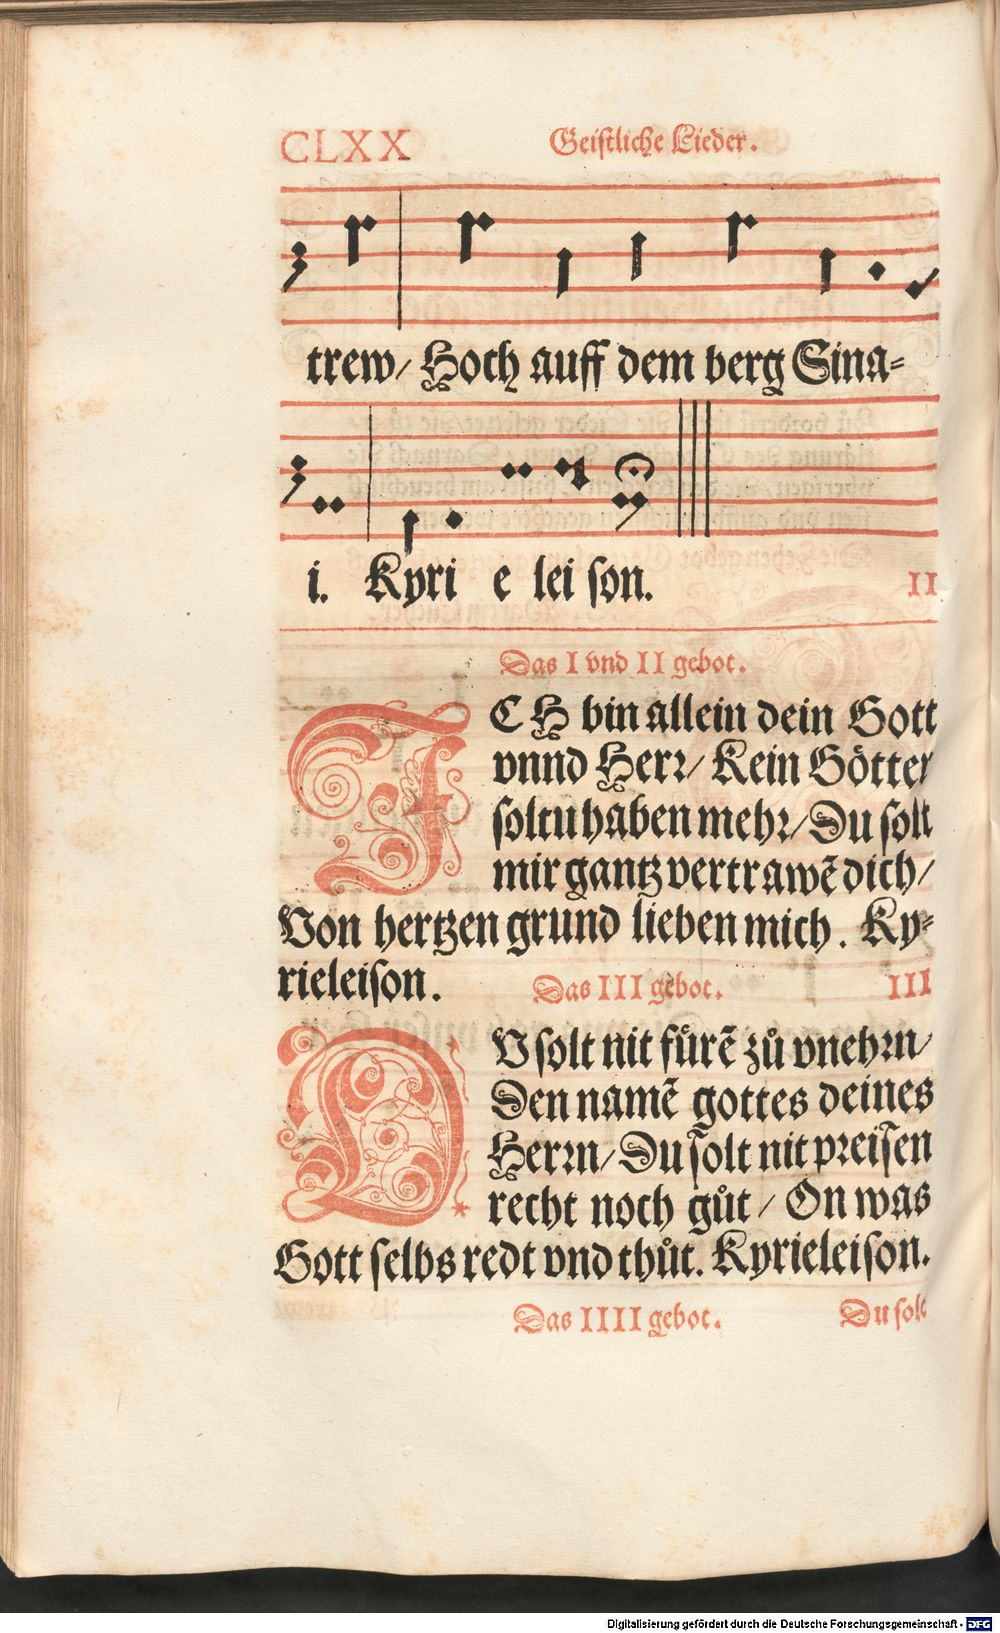 CLXX Geistliche Lieder.
trew/ Hoch auff dem berg Sina⸗
i. Kyri e lei son.
II
Das I vnd II gebot.
ICH bin allein dein Gott
vnnd Herr/ Kein Götter
soltu haben mehr/ Du solt
mir gantz vertrawẽ dich/
Von hertzen grund lieben mich. Ky⸗
rieleison. Das III gebot. III
DV solt nit fürẽ zů vnehrn/
Den namẽ gottes deines
Herrn/ Du solt nit preisen
recht noch gůt/ On was
Gott selbs redt vnd thůt. Kyrieleison.
Das IIII gebot. Du solt
Digitalisierung gefördert durch die Deutsche Forschungsgemeinschaft - DFG